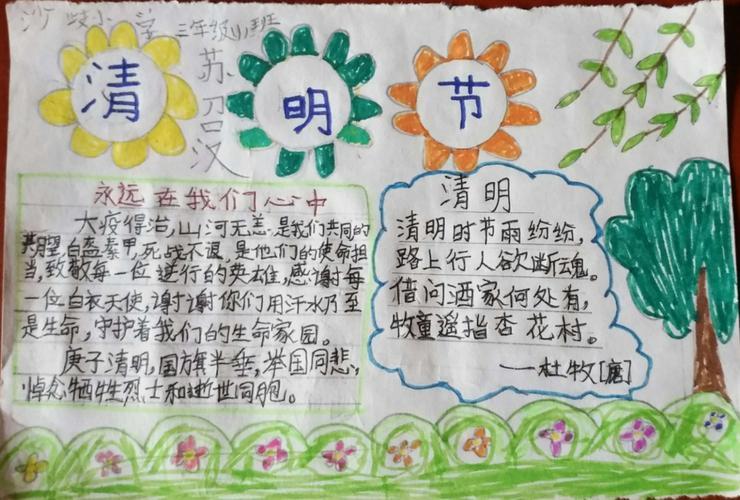 小学 三年级
清 明 节
永远在我们心中
大疫得治,山河无恙是我们共同的
期望,白盔素甲,死战不退,是他们的使命担
当,致敬每一位逆行的英雄,感谢每
一位白衣天使,谢谢你们用汗水乃至
是生命,守护着我们的生命家园。
庚子清明,国旗半垂,举国同悲,
悼念牺牲烈士和逝世同胞。
清明
清明时节雨纷纷,
路上行人欲断魂。
借问酒家何处有,
牧童遥指杏花村。
——杜牧[唐]